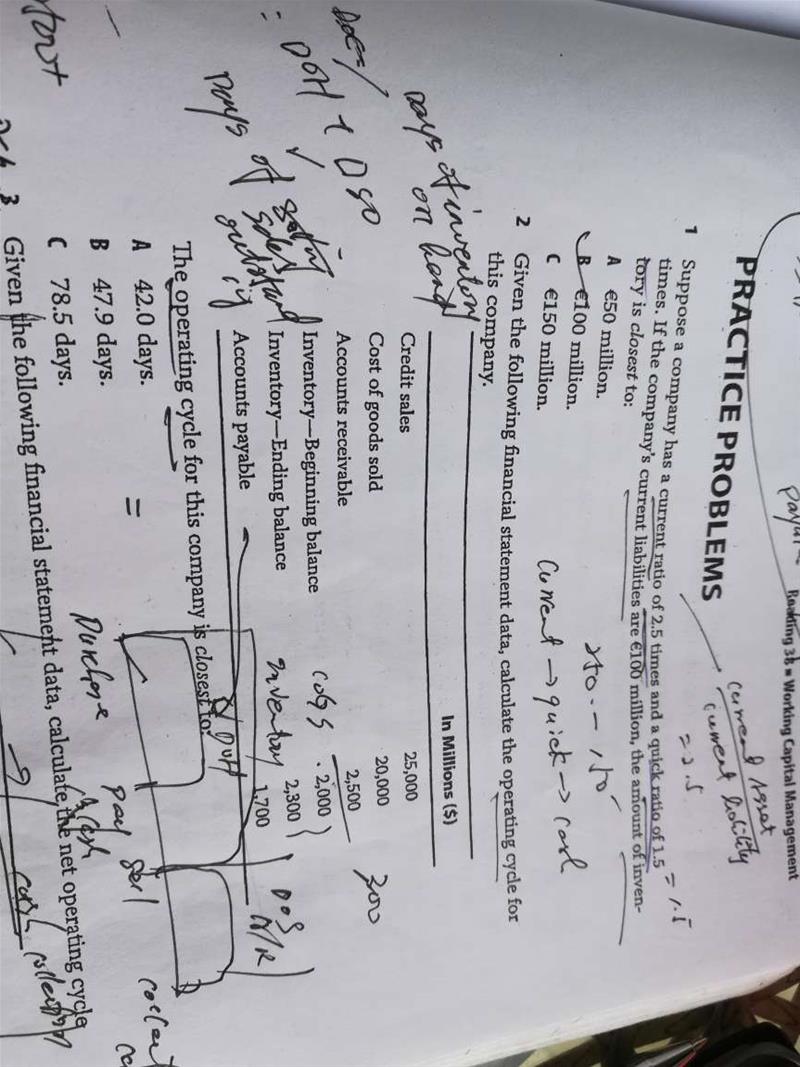 Reading 38 ■ Working Capital Management
PRACTICE PROBLEMS
current asset
current liability
= 2.5
1 Suppose a company has a current ratio of 2.5 times and a quick ratio of 1.5 = 1.5
times. If the company's current liabilities are €100 million, the amount of inven-
tory is closest to:
A €50 million.
B €100 million.
C €150 million.
250 - 150
Current → quick → cash
2 Given the following financial statement data, calculate the operating cycle for
this company.
In Millions ($)
Credit sales 25,000
Cost of goods sold 20,000
Accounts receivable 2,500
Inventory—Beginning balance 2,000
Inventory—Ending balance 2,300
Accounts payable 1,700
300
COGS
Inventory
Days of
on hand
DOH + DSO
Days of
sales
The operating cycle for this company is closest to:
A 42.0 days.
B 47.9 days.
C 78.5 days.
=
DOH
A/R
Purchase
pay
cash
sell
collect
3 Given the following financial statement data, calculate the net operating cycle
cash